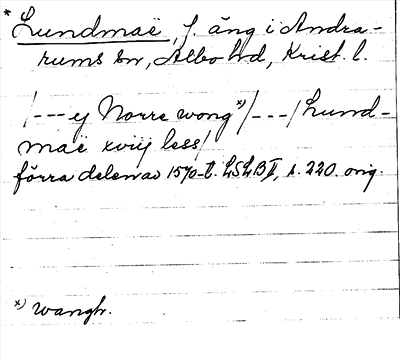 * Lundmaë, f. äng i Andra-
rums sn, Albo hd, Krist. l.
/---ej Norre wong *)/---/Lund-
maë xviij less/
förra delen av 1570-t. LSLB II, s. 220. orig.
*) wangh.